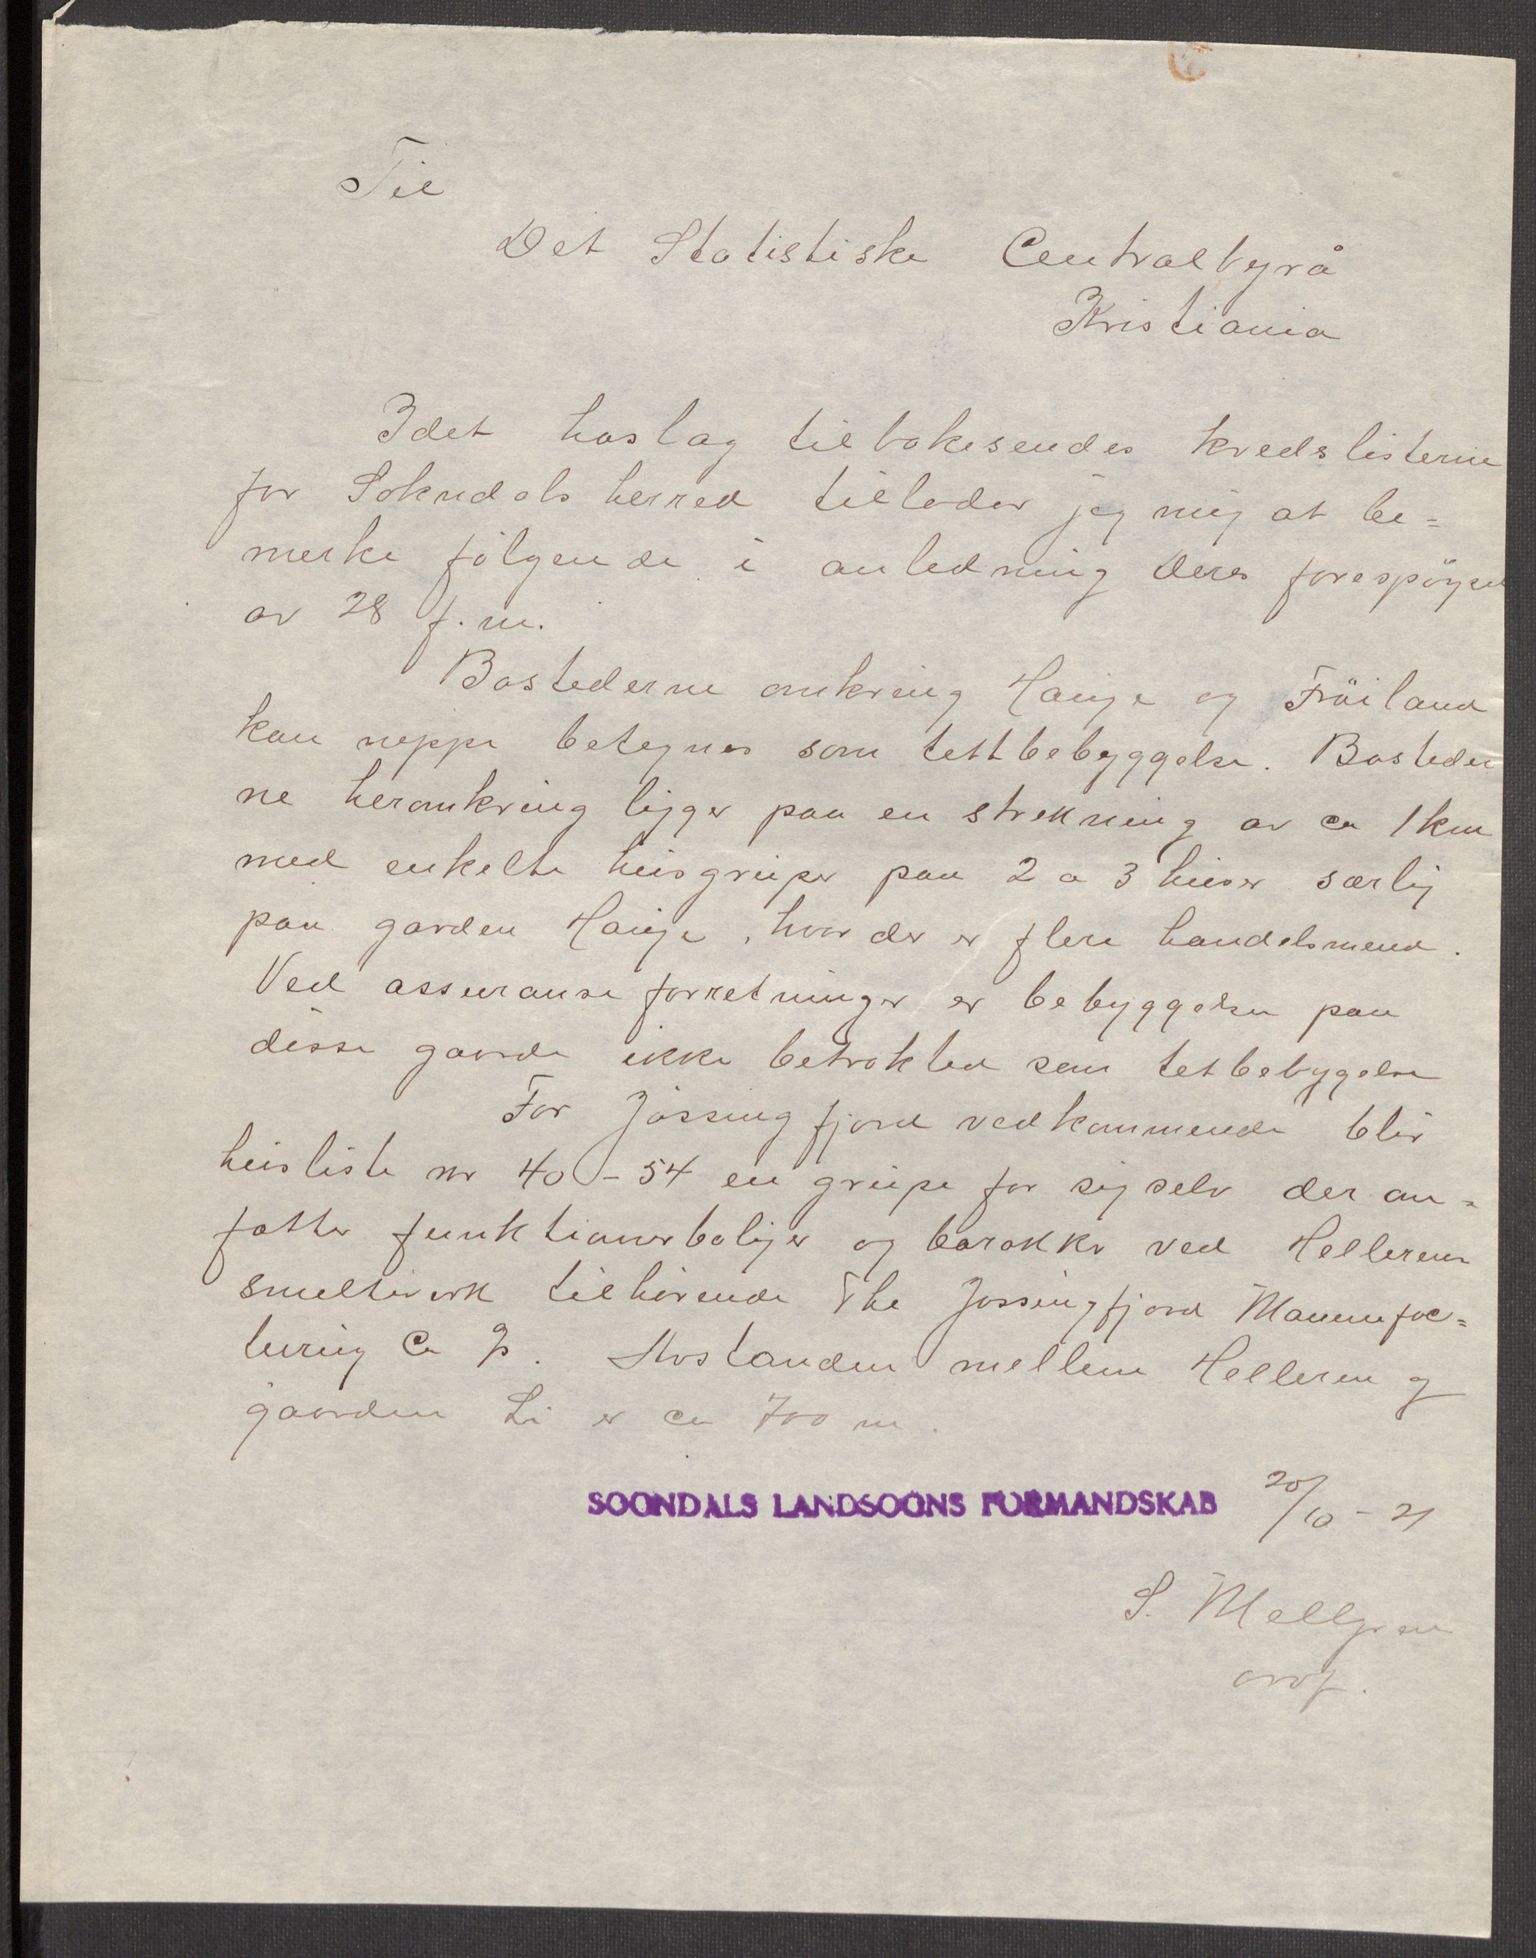 Til
Det Statistiske Centralbyrå
Kristiania
Idet hoslag tilbakesendes kredslisterne
for Sokndals herred tillader jeg mig at be=
merke følgende i anledning Deres forespørsel
av 28 f.m.
Bostederne omkring Hauge og Frøiland
kan neppe betegnes som tettbebyggelse. Bosteder
ne heromkring ligger paa en strekning av ca 1 km
med enkelte husgruper paa 2 a 3 huser særlig
paa garden Hauge, hvor der er flere handelsmend.
Ved assuranseforretninger er bebyggelsen paa
disse gaarde ikke betrakted som tetbebygelse
For Jøssingfjord vedkommende blir
husliste nr 40-54 en grupe for sig selv der om=
fatter funktionærboliger og barakke ved Helleren
smelteverk tilhørende The Jøssingfjord Manufac=
turing Co
Avstanden mellem Helleren og
gaarden Li er ca 700 m.
SOGNDALS LANDSOGNS FORMANDSKAB 20/10-21
S. Mellgren
ordf.